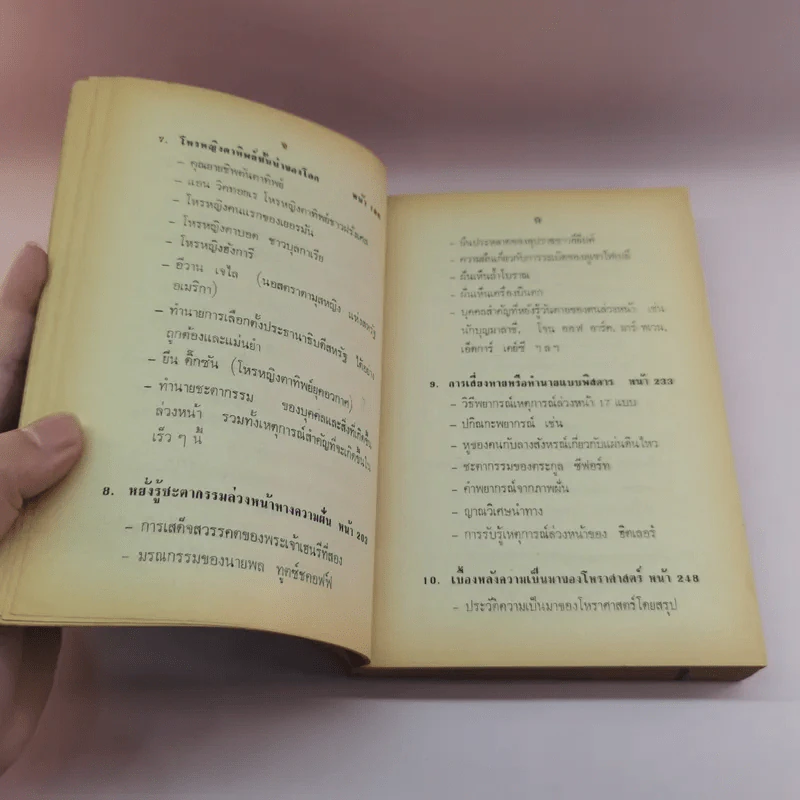 จ
7. โหรหญิงตาทิพย์ชั้นนำของโลก หน้า
– คุณยายชิพตันตาทิพย์
– แอน โหรหญิงตาทิพย์ชาวฝรั่งเศส
– โหรหญิงคนแรกของเยอรมัน
– โหรหญิงตาบอด ชาวบุลกาเรีย
– โหรหญิงฮังการี
– อีวาน เจไล (นอสตราดามุสหญิง แห่งสหรัฐ
อเมริกา)
– ทำนายการเลือกตั้งประธานาธิบดีสหรัฐ ได้อย่าง
ถูกต้องและแม่นยำ
– ยีน ดิ๊กซัน (โหรหญิงตาทิพย์ยุคอวกาศ)
– ทำนายชะตากรรม ของบุคคลและสิ่งที่เกิดขึ้น
ล่วงหน้า รวมทั้งเหตุการณ์สำคัญที่จะเกิดขึ้นใน
เร็ว ๆ นี้
8. หยั่งรู้ชะตากรรมล่วงหน้าทางความฝัน หน้า 202
– การเสด็จสวรรคตของพระเจ้าเฮนรีที่สอง
– มรณกรรมของนายพล ทูตซ์ชคอฟฟ์
– ฝันประหลาดของ
– ความฝันเกี่ยวกับการระเบิดของภูเขาไฟ
– ฝันเห็นถ้ำโบราณ
– ฝันเห็นเครื่องบินตก
– บุคคลสำคัญที่หยั่งรู้วันตายของตนล่วงหน้า เช่น
นักบุญมาลาชี, โจน ออฟ อาร์ค,
เอ็ดการ์ เคย์ซี ฯลฯ
9. การเสี่ยงทายหรือทำนายแบบพิสดาร หน้า 233
– วิธีพยากรณ์เหตุการณ์ล่วงหน้า 17 แบบ
– ปกิณกะพยากรณ์ เช่น
– หูของคนกับลางสังหรณ์เกี่ยวกับแผ่นดินไหว
– ชะตากรรมของตระกูล ซีฟอร์ท
– คำพยากรณ์จากภาพฝัน
– ญาณวิเศษนำทาง
– การรับรู้เหตุการณ์ล่วงหน้าของ ฮิตเลอร์
10. เบื้องหลังความเป็นมาของโหราศาสตร์ หน้า 248
– ประวัติความเป็นมาของโหราศาสตร์โดยสรุป